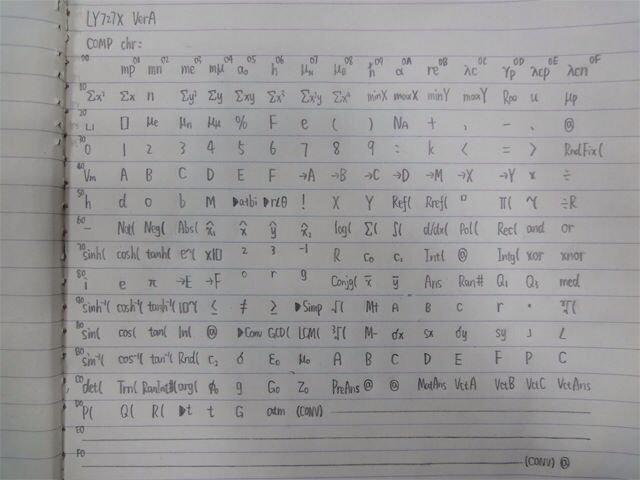 LY727X VerA
COMP chr:
00 01 02 03 04 05 06 07 08 09 0A 0B 0C 0D 0E 0F
mp mn me mμ a₀ h μN μB ħ α re λc γp λcp λcn
10 Σx² Σx n Σy² Σy Σxy Σx³ Σx²y Σx⁴ minX maxX minY maxY R∞ u μp
20 ⎵ [] μe μn μμ % F e ( ) NA + , - . @
30 0 1 2 3 4 5 6 7 8 9 : k < = > RndFix(
40 Vm A B C D E F →A →B →C →D →M →X →Y × ÷
50 h d o b M ▶a+bi ▶r∠θ ! X Y Ref( Rref( ° Π( ~( ÷R
60 - Not( Neg( Abs( x̂₁ x̂ ŷ x̂₂ log( Σ( ∫( d/dx( Pol( Rec( and or
70 sinh( cosh( tanh( e^( x10 ² ³ ⁻¹ R c₀ c₁ Int( @ Intg( xor xnor
80 i e π →E →F ° r g Conjg( x̄ ȳ Ans Ran# Q₁ Q₃ med
90 sinh⁻¹( cosh⁻¹( tanh⁻¹( 10^( ≤ ≠ ≥ ▶Simp √( M+ A B C r ·
A0 sin( cos( tan( ln( @ ▶Conv GCD( LCM( ³√( M- σx sx σy sy ⅃ ∠
B0 sin⁻¹( cos⁻¹( tan⁻¹( Rnd( c₂ σ ε₀ μ₀ A B C D E F P C
C0 det( Trn( RanInt#( arg( φ₀ g G₀ Z₀ PreAns @ @ MatAns VctA VctB VctC VctAns
D0 P( Q( R( ▶t t G atm (CONV)
E0
F0 (CONV) @